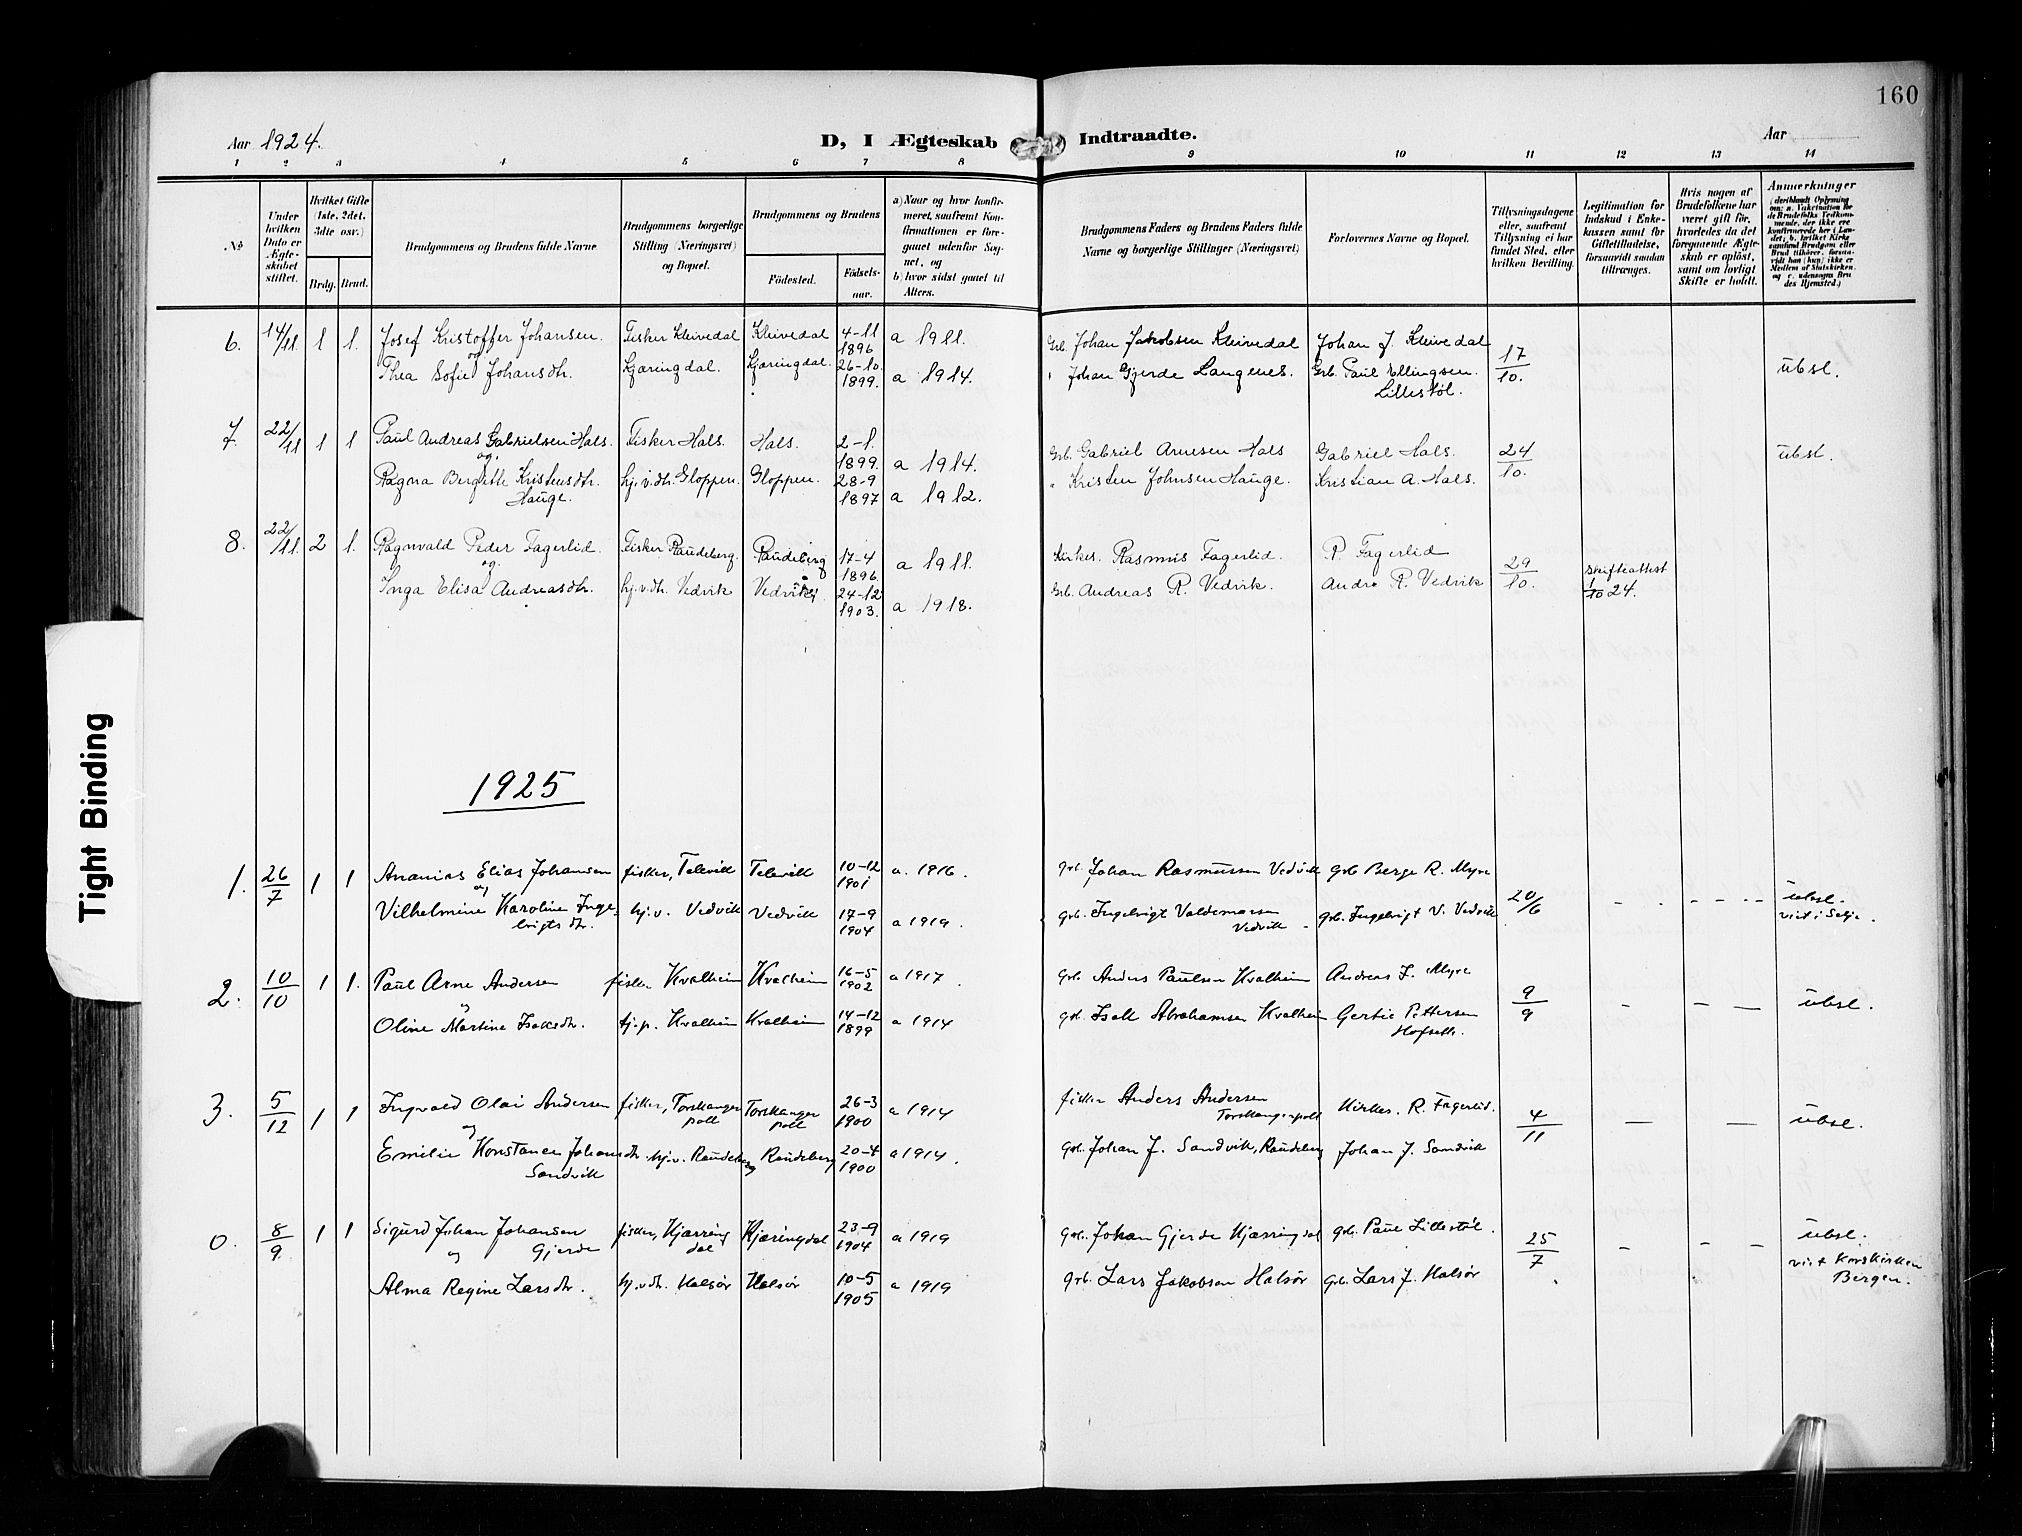 160
Aar 1924.
D, I Ægteskab Indtraadte.
Aar
1 2 3 4 5 6 7 8 9 10 11 12 13 14
No
Under hvilken Dato er Ægteskabet stiftet.
Hvilket Gifte (1ste, 2det, 3die osv.)
Brdg. Brud.
Brudgommens og Brudens fulde Navne
Brudgommens borgerlige Stilling (Næringsvei) og Bopæl.
Brudgommens og Brudens
Födested.
Födselsaar.
a) Naar og hvor konfirmeret, saafremt Konfirmationen er foregaaet udenfor Sognet, og
b) hvor sidst gaaet til Alters.
Brudgommens Faders og Brudens Faders fulde Navne og borgerlige Stillinger (Næringsvei)
Forlovernes Navne og Bopæl.
Tillysningsdagene eller, saafremt Tillysning ei har fundet Sted, efter hvilken Bevilling.
Legitimation for Indskud i Enkekassen samt for Giftetilladelse, forsaavidt saadan tiltrænges.
Hvis nogen af Brudefolkene har været gift för, hvorledes da det foregaaende Ægteskab er oplöst, samt om lovligt Skifte er holdt.
Anmerkninger
(deriblandt Oplysning om: a. Vakcination for de Brudefolks Vedkommende, der ikke ere konfirmerede her i Landet; b. hvilket Kirkesamfund Brudgom eller Brud tilhörer, forsaavidt han (hun) ikke er Medlem af Statskirken, og c. udensogns Brudes Hjemsted.)
6. 14/11 1 1. Josef Kristoffer Johansen. Fisker Kleivedal Kleivedal 4-11 1896 a 1911. Grb. Johan Jakobsen Kleivedal Johan J. Kleivedal 17/10.
og
Thea Sofie Johansdtr. Kjæringdal. Kjæringdal. 26-10. 1899. a 1914. " Johan Gjerde Langenes. Grb. Paul Ellingsen. Lillestöl. ubsl.
7. 22/11 1 1 Paul Andreas Gabrielsen Hals. Fisker Hals. Hals. 2-1. 1899. a 1914. Grb. Gabriel Arnesen Hals Gabriel Hals. 24/10. ubsl.
og.
Ragna Bergitte Kristensdtr. Hauge. hj.v.dtr. Gloppen. Gloppen. 28-9 1897 a 1912. " Kristen Johnsen Hauge. Kristian A. Hals.
8. 22/11. 2 1. Ragnvald Peder Fagerlid. Fisker Raudeberg. Raudeberg 17-4 1896. a 1911. Kirkes. Rasmus Fagerlid. R. Fagerlid 29/10. Skifteattest 1/10 24.
og.
Inga Elisa Andreasdtr. hj.v.dtr. Vedvik Vedvik 24-12 1903. a 1918. Grb. Andreas R. Vedvik. Andre R. Vedvik
1925
1. 26/7 1 1 Ananias Elias Johansen fisker, Televik Televik 10-12 1901 a. 1916. Grb. Johan Rasmussen Vedvik Grb Berge R. Myre 20/6 - - - - - ubsl. viet i Selje.
og
Vilhelmine Karoline Ingebrigtsdtr. hj.v. Vedvik Vedvik 17-9 1904 a 1919. grb. Ingebrigt Valdemarsen Vedvik - grb. Ingebrigt V. Vedvik
2. 10/10 1 1. Paul Arne Andersen fisker Kvalheim Kvalheim 16-5 1902 a 1917 grb. Anders Paulsen Kvalheim Andreas J. Myre 9/9 - - - ubsl.
og
Oline Martine Isaksdtr. tj.p. Kvalheim Kvalheim 14-12 1899 a 1914 grb. Isak Abrahamsen Kvalheim Gertie Pettersen Hofseth.
3. 5/12 1 1 Ingvald Olai Andersen fisker, Torskangerpoll Torskangerpoll 26-3 1900 a 1914 fisker Anders Andersen Torskangerpoll Kirkes. R. Fagerlid. 4/11 - - ubsl.
og
Emilie Konstanse Johansdtr. Sandvik hj.v. Raudeberg Raudeberg 20-4 1900 a 1914. grb. Johan J. Sandvik, Raudeberg Johan J. Sandvik
0. 8/9 1 1 Sigurd Johan Johansen Gjerde fisker, Kjærringdal Kjæringdal 23-9 1904 a 1919 grb. Johan Gjerde Kjærringdal grb. Paul Lillestöl. 25/7 - - - ubsl. viet Korskirken Bergen.
og
Alma Regine Larsdtr. hj.v.dtr. Halsör Halsör 10-5 1905 a 1919 Grb. Lars Jakobsen Halsör Grb. Lars J. Halsör
Tight Binding